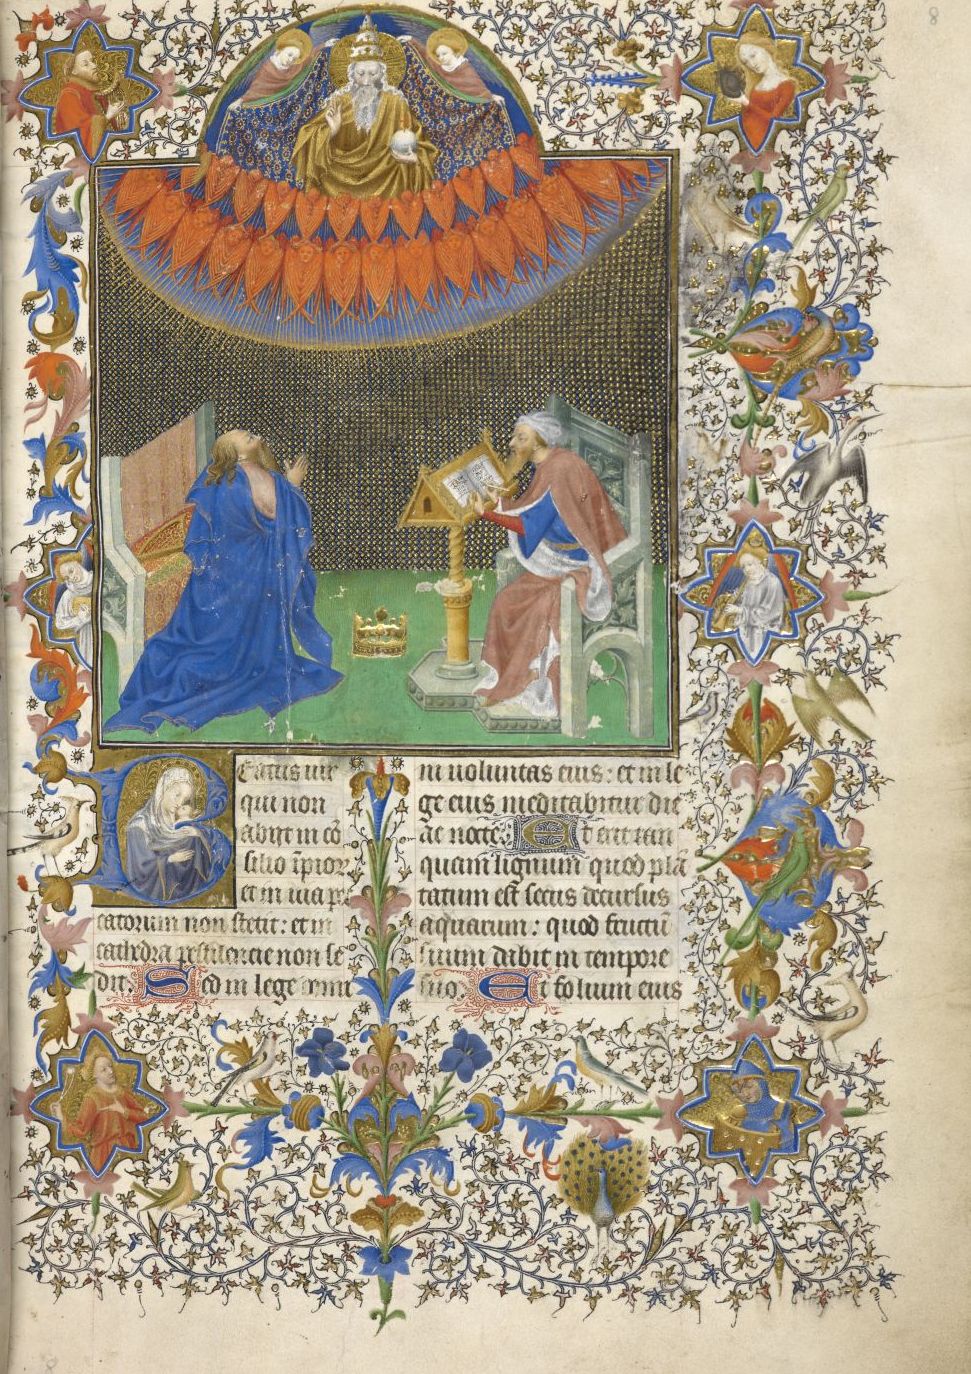 8
Beatus vir
qui non
abiit in cō
silio īpior
et in via pec
catorum non stetit: et in
cathedra pestilencie non se
dit. Sed in lege domi
ni voluntas eius: et in le
ge eius meditabitur die
ac nocte. Et erit tan
quam lignum quod plā
tatum est secus decursus
aquarum: quod fructū
suum dabit in tempore
suo. Et folium eius